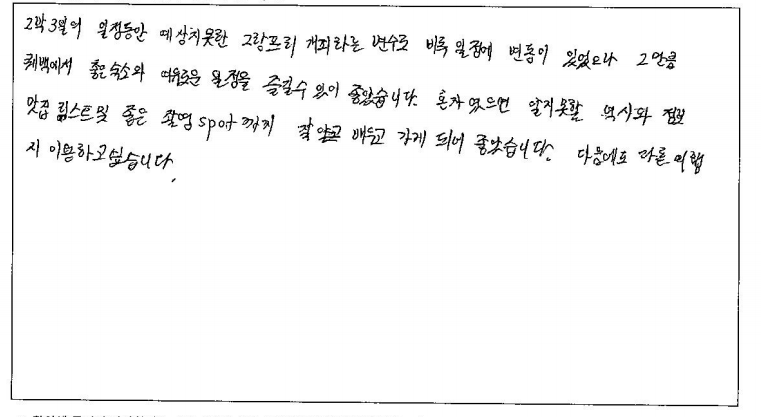 2박3일의 일정동안 예상치못한 그랑프리 개최라는 변수로 비록 일정에 변동이 있었으나 그만큼
퀘백에서 좋은숙소와 여유로운 일정을 즐길수 있어 좋았습니다. 혼자였으면 알지못할 역사와 정보
맛집 리스트및 좋은 촬영 spot 까지 잘 알고 배우고 가게 되어 좋았습니다. 다음에도 다른 여행
지 이용하고싶습니다.